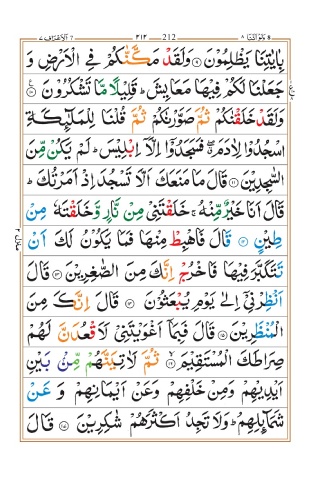 ولواننا ٨ ٢١٢ 212 الاعراف ٧
بِاٰيٰتِنَا يَظْلِمُوْنَ ۹ وَلَقَدْ مَكَّنّٰكُمْ فِي الْاَرْضِ وَ
جَعَلْنَا لَكُمْ فِيْهَا مَعَايِشَ ؕ قَلِيْلًا مَّا تَشْكُرُوْنَ ۱۰
وَلَقَدْ خَلَقْنٰكُمْ ثُمَّ صَوَّرْنٰكُمْ ثُمَّ قُلْنَا لِلْمَلٰٓئِكَةِ
اسْجُدُوْا لِاٰدَمَ ۖ فَسَجَدُوْٓا اِلَّاۤ اِبْلِيْسَ ؕ لَمْ يَكُنْ مِّنَ
السّٰجِدِيْنَ ۱۱ قَالَ مَا مَنَعَكَ اَلَّا تَسْجُدَ اِذْ اَمَرْتُكَ ؕ
قَالَ اَنَا خَيْرٌ مِّنْهُ ۚ خَلَقْتَنِيْ مِنْ نَّارٍ وَّخَلَقْتَهٗ مِنْ
طِيْنٍ ۱۲ قَالَ فَاهْبِطْ مِنْهَا فَمَا يَكُوْنُ لَكَ اَنْ
تَتَكَبَّرَ فِيْهَا فَاخْرُجْ اِنَّكَ مِنَ الصّٰغِرِيْنَ ۱۳ قَالَ
اَنْظِرْنِيْۤ اِلٰى يَوْمِ يُبْعَثُوْنَ ۱۴ قَالَ اِنَّكَ مِنَ
الْمُنْظَرِيْنَ ۱۵ قَالَ فَبِمَاۤ اَغْوَيْتَنِيْ لَاَقْعُدَنَّ لَهُمْ
صِرَاطَكَ الْمُسْتَقِيْمَ ۱۶ ثُمَّ لَاٰتِيَنَّهُمْ مِّنْۢ بَيْنِ
اَيْدِيْهِمْ وَمِنْ خَلْفِهِمْ وَعَنْ اَيْمَانِهِمْ وَ عَنْ
شَمَآئِلِهِمْ ؕ وَلَا تَجِدُ اَكْثَرَهُمْ شٰكِرِيْنَ ۱۷ قَالَ